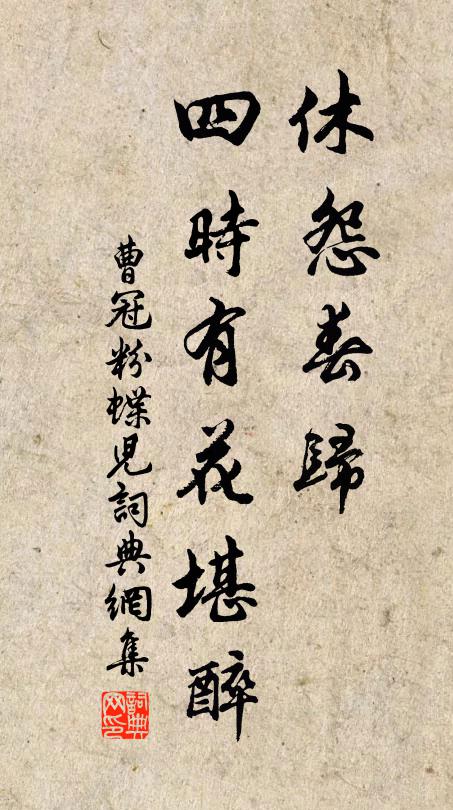 休怨春歸
四時有花堪醉
曹冠粉蝶兒詞典網集
詞典网印